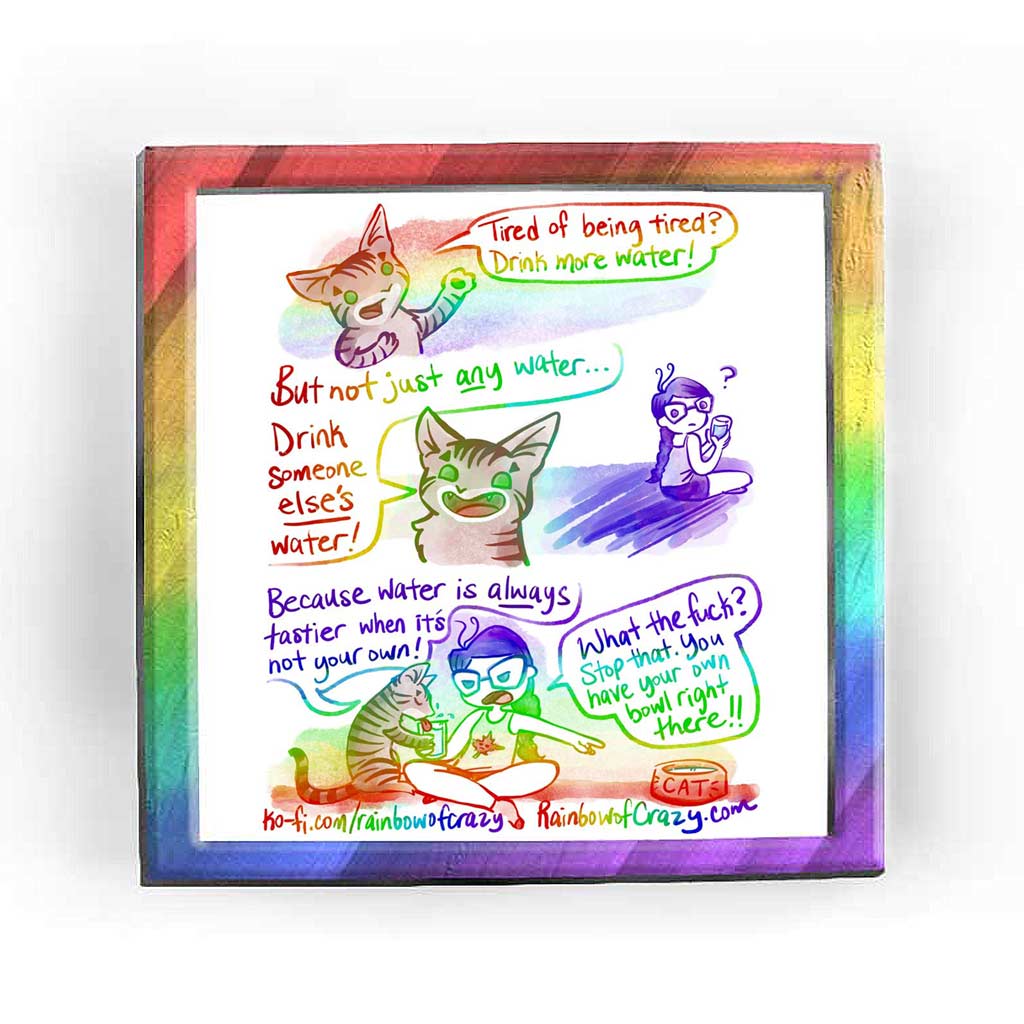 Tired of being tired?
Drink more water!
But not just any water...
Drink
someone
else's
water!
?
Because water is always
tastier when it's
not your own!
What the fuck?
Stop that. You
have your own
bowl right
there!!
CAT
ko-fi.com/rainbowofcrazy RainbowofCrazy.com